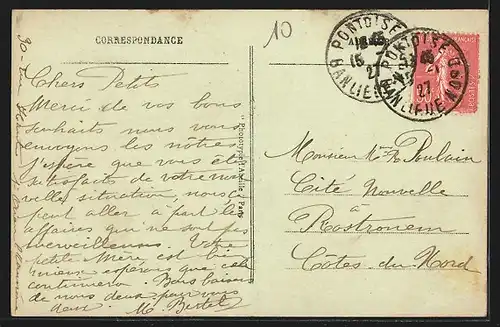 CORRESPONDANCE
10
Chers Petits
Merci de vos bons
souhaits nous vous
envoyons les nôtres
J'espère que vous êtes
satisfaits de votre nou
velle situation, nous ça
peut aller à part les
affaires qui ne sont pas
merveilleuses. Votre
petite Mère est bien
mieux espérons que cela
continuera. Bons baisers
de nous deux pour vous
deux. M.
" Phototypie Abeille " Paris
PONTOISE
BANLIEUE
15
27
PONTOISE
BANLIEUE
27
Monsieur Poulain
Cité Nouvelle
à
Rostronem
Côtes du Nord